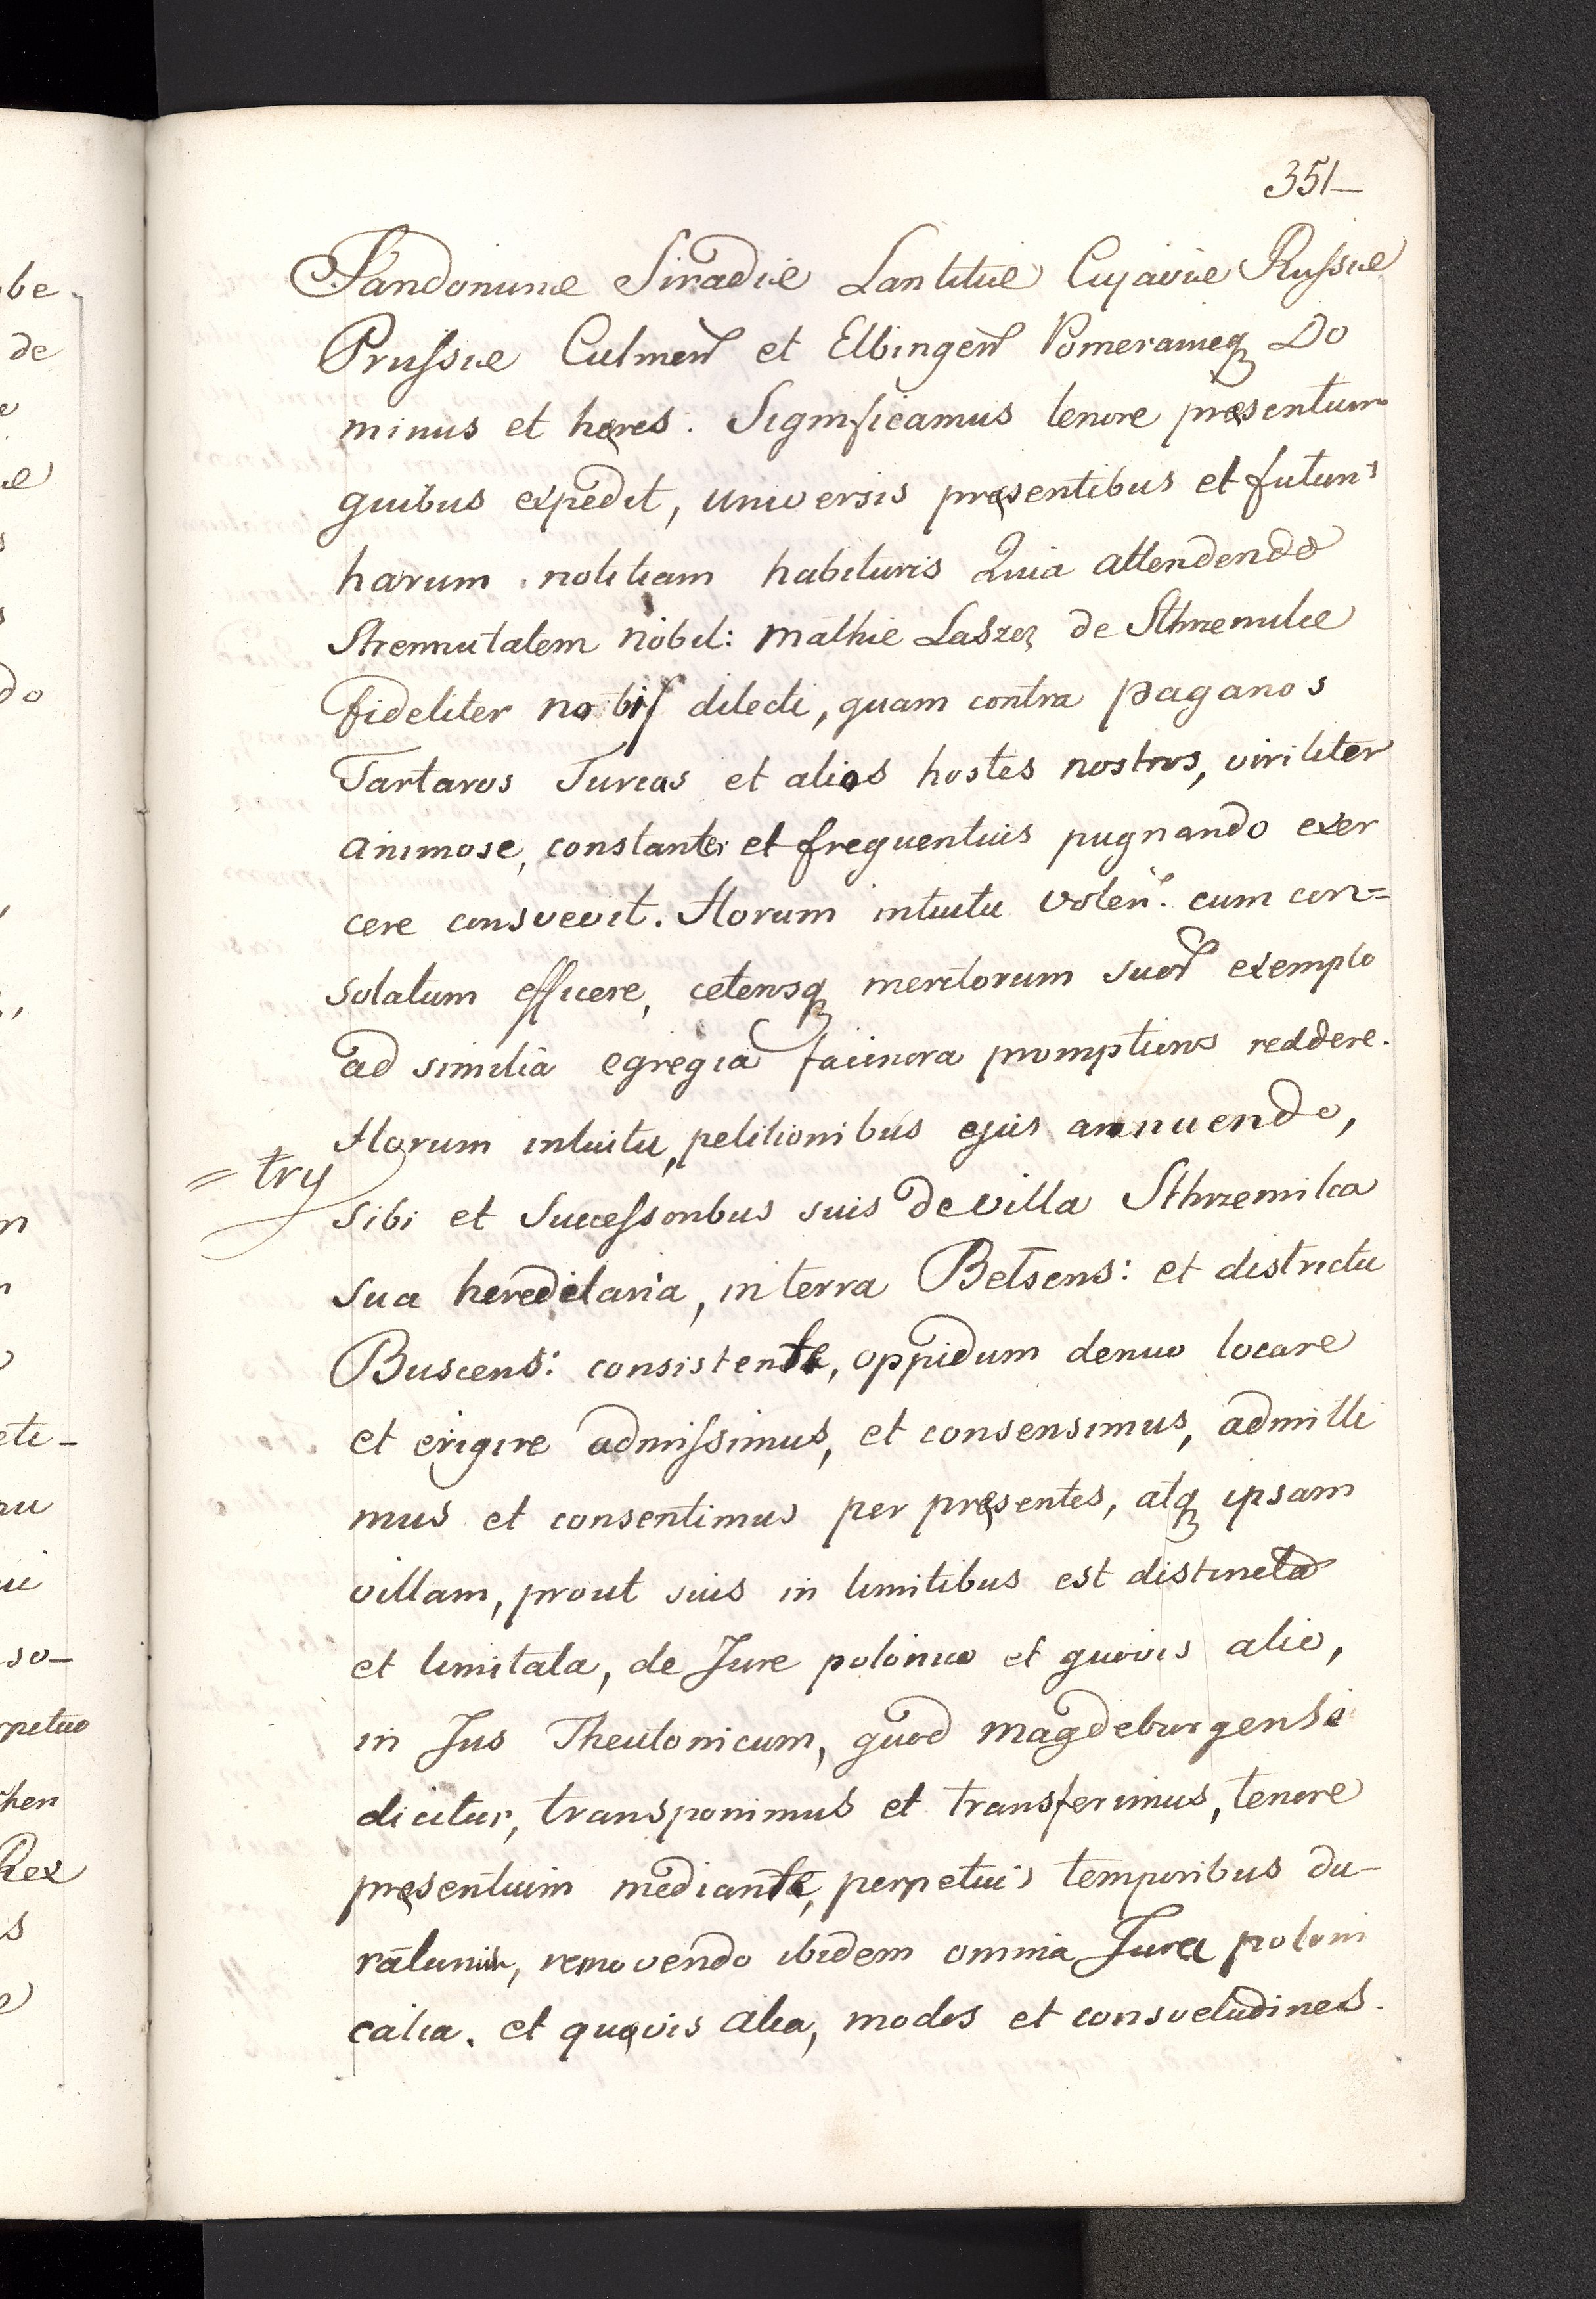 351
Sandomirie Siradie Lantitie Cujavie Russie
Prussie Culmen et Elbingen Pomeranieq Do
minus et heres. Significamus tenore presentium
quibus expedit, universis presentibus et futuris
harum notitiam habituris Quia attendendo
Strennutatem nobil: Mathie Laszcz de Sthremilcze
fideliter nobis dilecti, quam contra paganos
Tartaros Turcas et alios hostes nostros, viriliter
animose, constanter et frequentius pugnando exer
cere consvevit. Horum intuitu volen: eum con=
solatum efficere, ceterosq meritorum suor exemplo
ad similia egregia facinora promptiores reddere.
Horum intuitu, petitionibus ejus annuendo,
= try
sibi et Successoribus suis de villa Sthrzemilca
sua hereditaria, in terra Belsens: et districtu
Buscens: consistente, oppidum denuo locare
et erigire admissimus, et consensimus, admitti
mus et consentimus per presentes, atq ipsam
villam, prout suis in limitibus est distincta
et limitata, de Jure polonico et quovis alio,
in Jus Theutonicum, quod Magdeburgense
dicitur, transponimus et transferimus, tenore
presentium mediante, perpetuis temporibus du-
raturum, removendo ibidem omnia Jura poloni
calia. et quevis alia, modos et consvetudines.